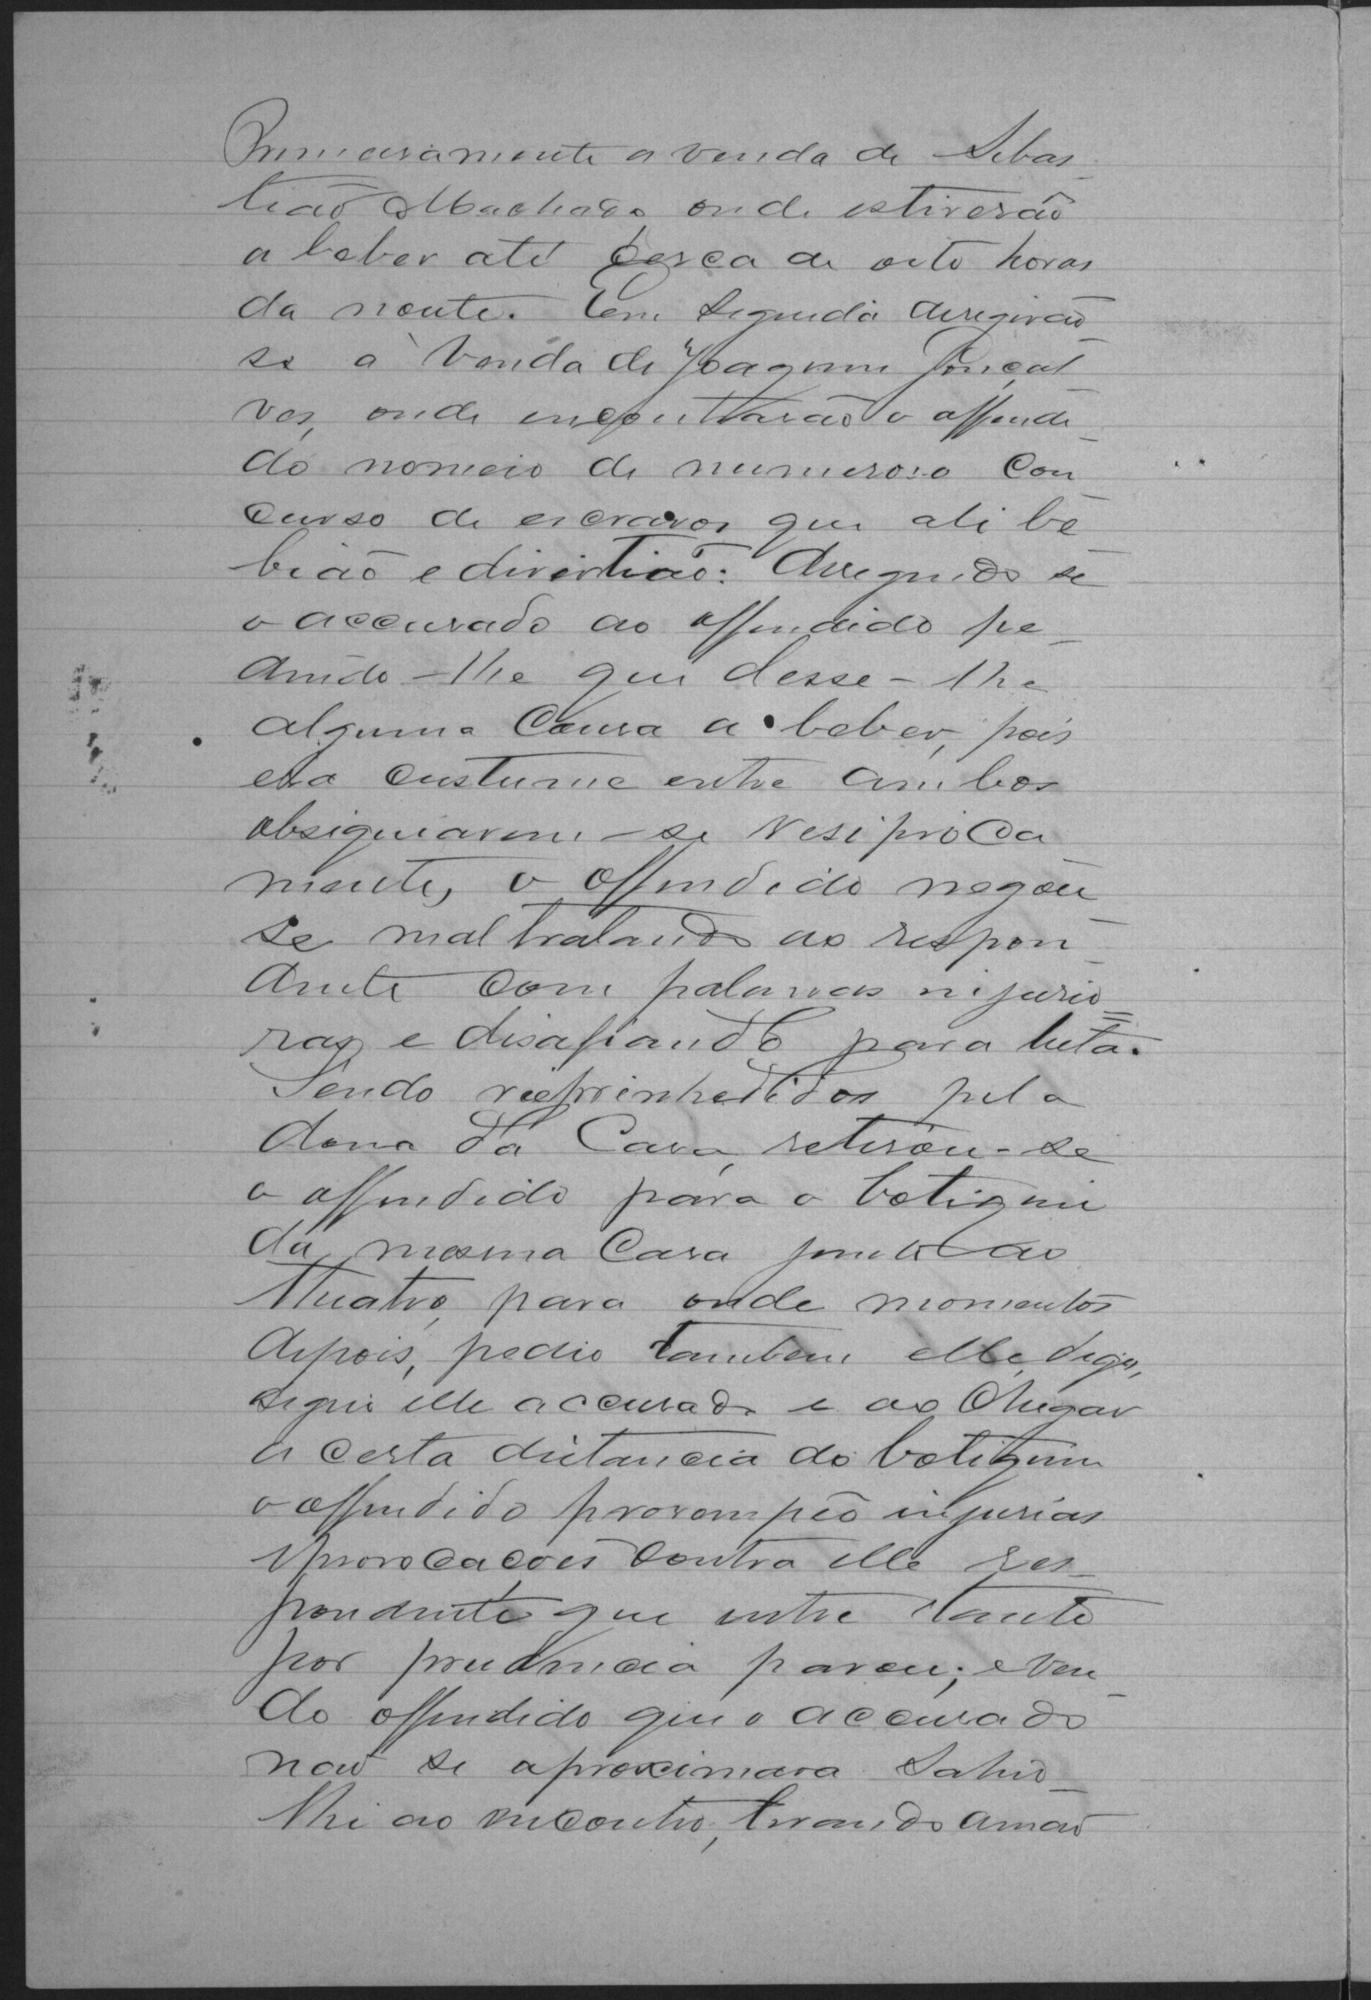 Primeiramente a venda de Sebas
tião Machado onde estiverão
a beber até cerca de oito horas
da noute. Em seguida dirigirão
se a venda de Joaquim Gonçal
ves, onde encontrarão o offendi
do nomeio de numeroso con
curso de escravos que ali be
bião e divirtião: Dirigindo se
o accusado ao offendido pe
dindo-lhe que desse-lhe
alguma cousa a beber, pois
era custume entre ambos
obsiquiarem-se resiproca
mente, o offendido negou
se maltratando ao respon
dente com palavras injurio
sas e disafiando para luta.
Sendo reeprinhedidos pela
dona da Casa, retirou-se
o offendido para o botiquim
da mesma Casa junto ao
Theatro, para onde momentos
depois, pedio tambem elle, digo,
seguio elle accusado e ao chegar
a certa distancia do botiquim
o offendido prorompeo injurias
provocações contra elle res
pondente que entre tanto
por prudencia parou; e ven
do offendido que o accusado
não se aproximava sahio
lhi ao incontro, levando a mão